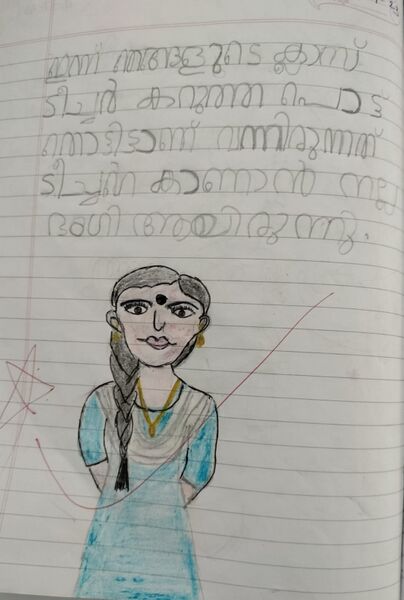 ഇന്ന് ഞങ്ങളുടെ ക്ലാസ്
ടീച്ചർ കറുത്ത പൊട്ട്
തൊട്ടിട്ടാണ് വന്നിരുന്നത്
ടീച്ചറെ കാണാൻ നല്ല
ഭംഗി ആയിരുന്നു.